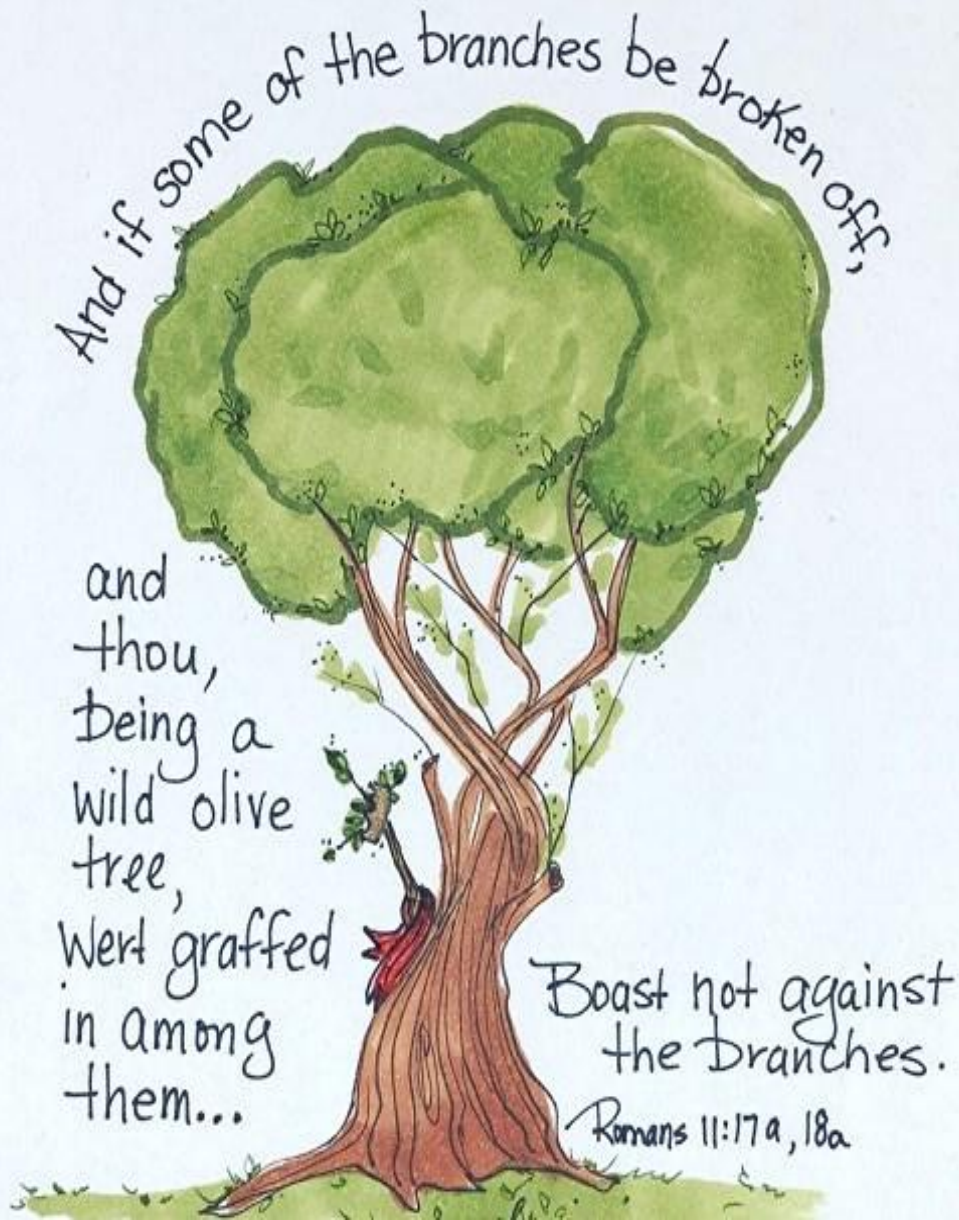 And if some of the branches be broken off,
and
thou,
being a
wild olive
tree,
wert graffed
in among
them...
Boast not against
the branches.
Romans 11:17a, 18a